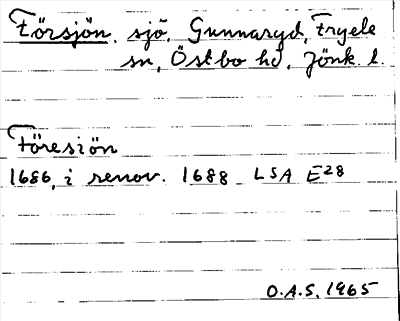 Försjön, sjö, Gunnaryd, Fryele
sn, Östbo hd, Jönk. l.
Föresiön
1686, i renov. 1688 LSA E28
O.A.S. 1965